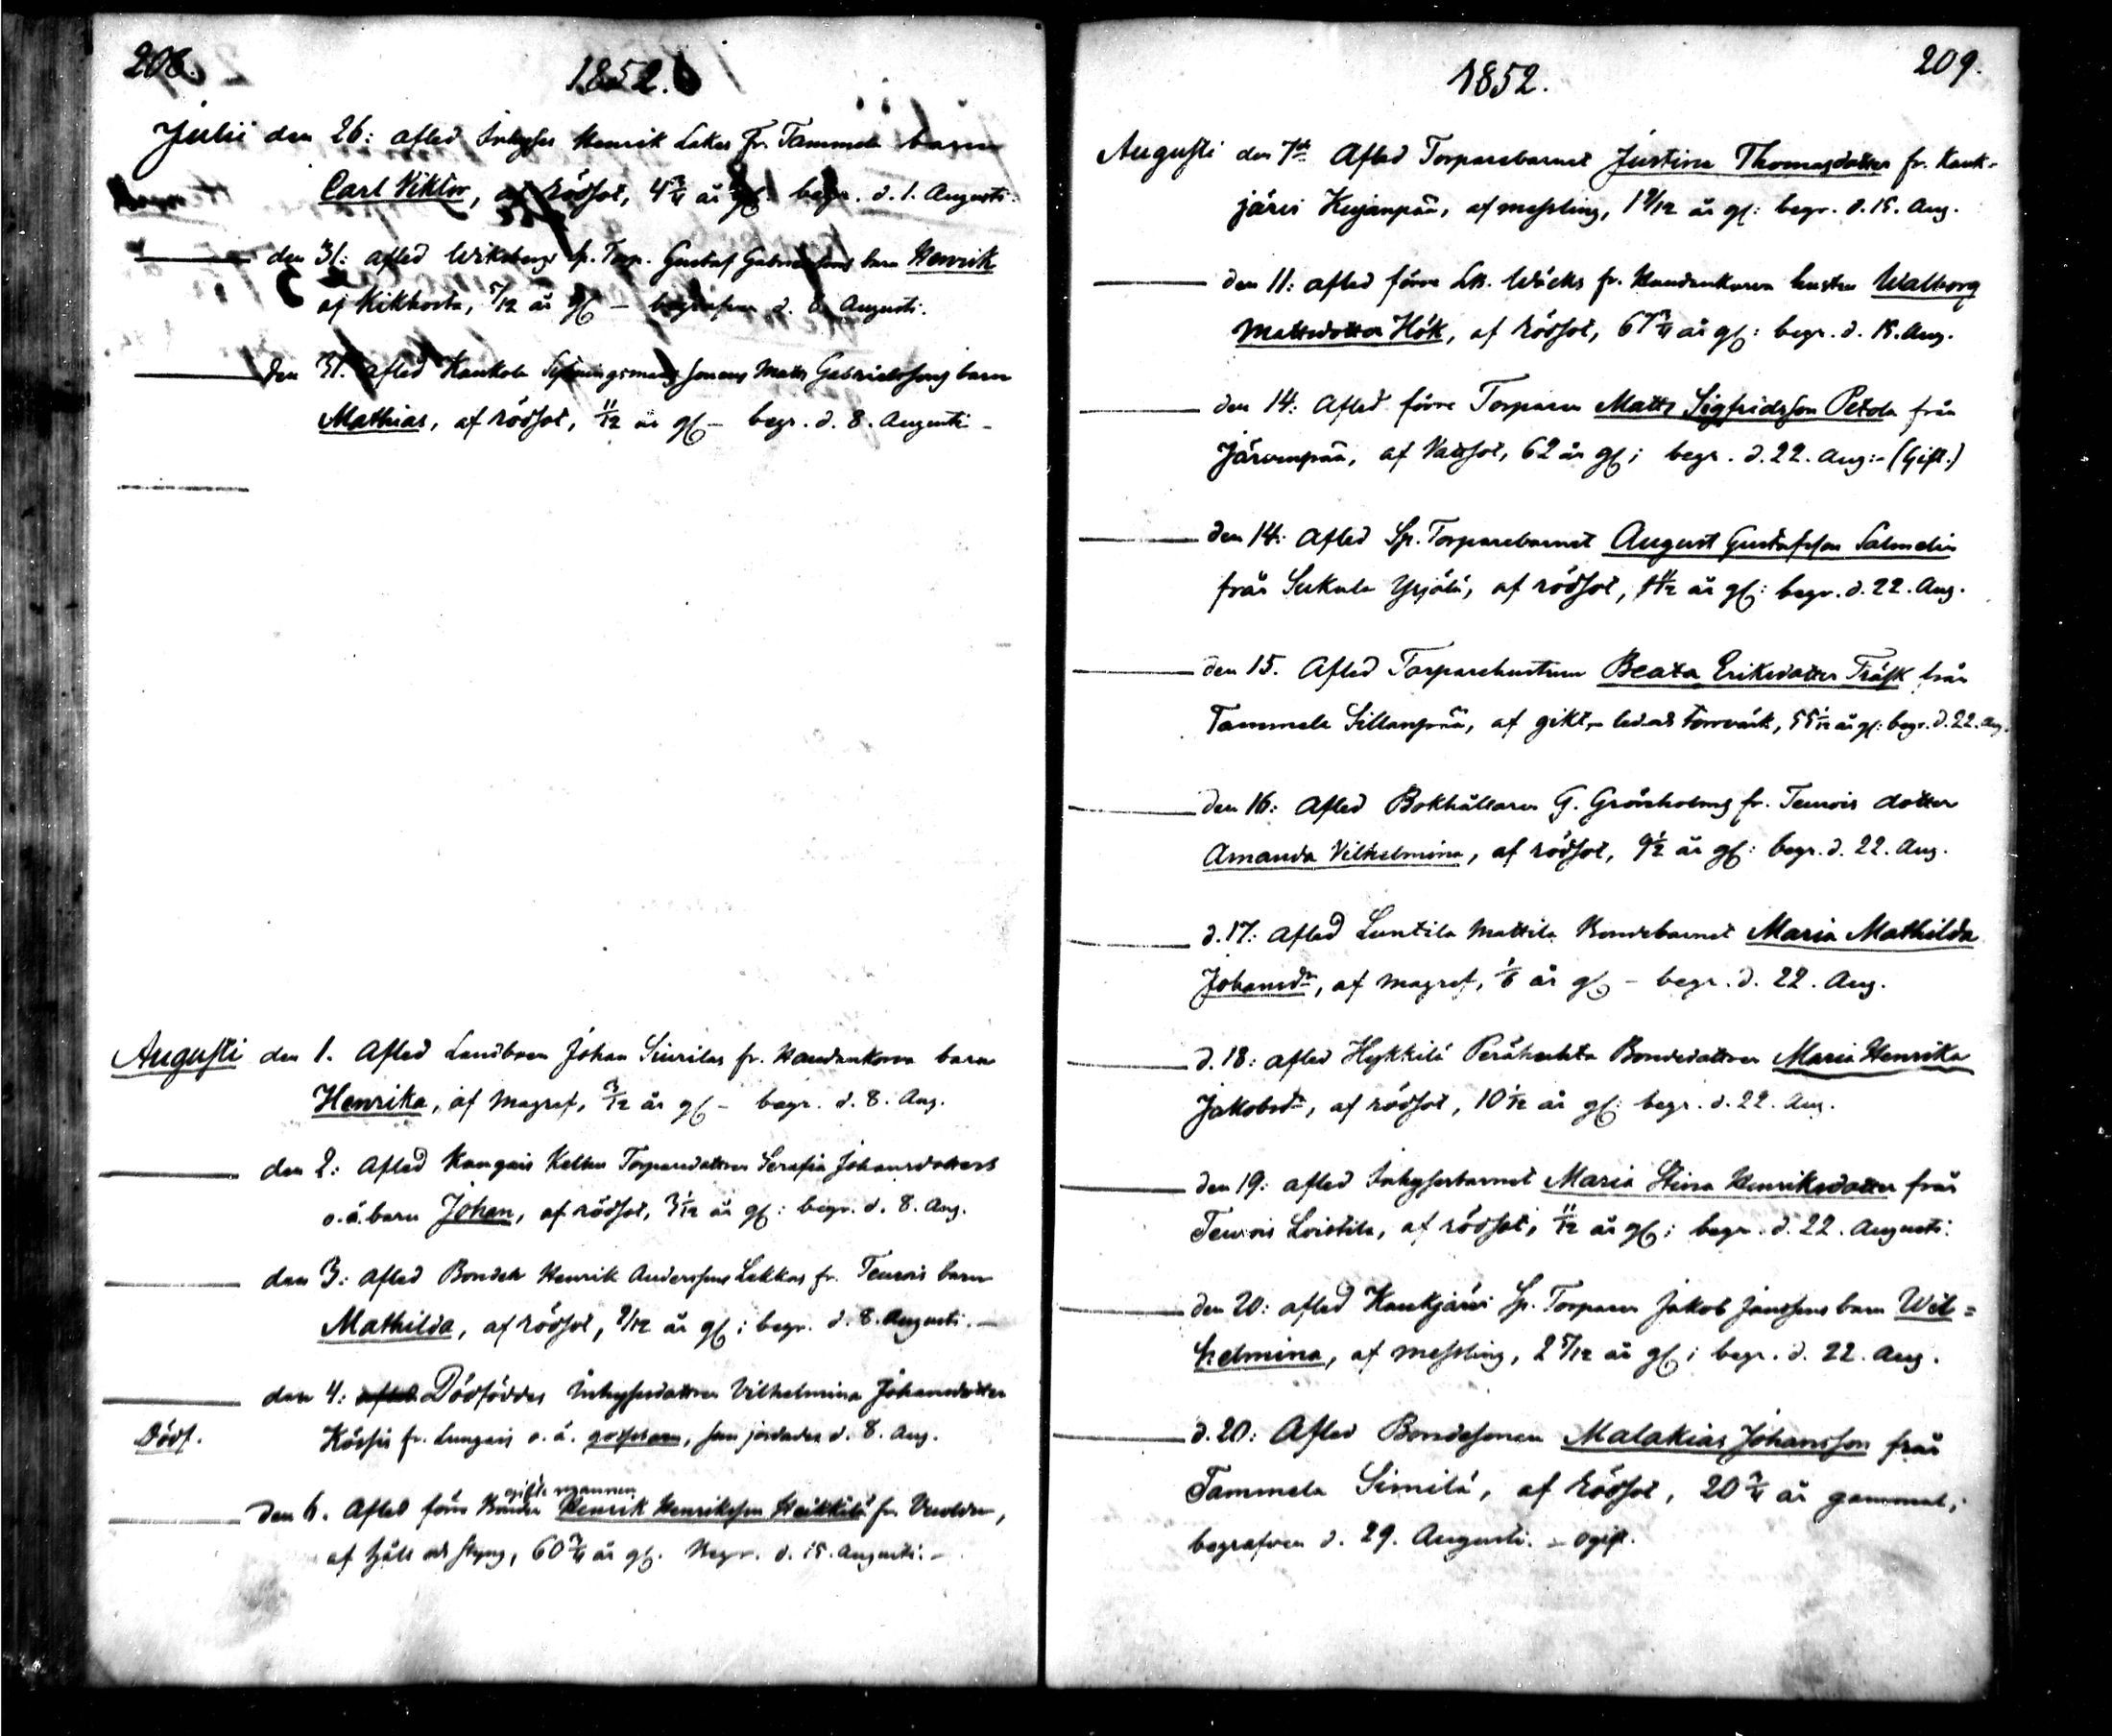 208.
1852.
Julii den 26: afled Inhyses Henrik Lakes fr. Tammela barn
Carl Viktor, af rödsot, 4 3/4 år gl. begr. d. 1. Augusti.
den 31: afled Wiksbergs sp. Torp. Gustaf Gabrielssons barn Henrik
af Kikhosta, 5/12 år gl – begrafven d. 8 Augusti.
den 31. afled Kaukola Mats Gabrielssons barn
Mathias, af rödsot, 11/12 år gl – begr. d. 8. Augusti –
Augusti den 1. Afled Landboen Johan Siurilas fr. Haudankorva barn
Henrika, af Magref, 3/12 år gl – begr. d. 8. Aug.
den 2: Afled Kangais Torparedottren Serafia Johansdotters
o.ä. barn Johan, af rödsot, 3 1/12 år gl: begr. d. 8. Aug.
den 3: afled Bonden Henrik Anderssons Lakkas fr. Teurois barn
Mathilda, af rödsot, 9/12 år gl; begr. d. 8. Augusti. –
den 4: afled Dödföddes Inhysesdottren Vilhelmina Johansdotter
Dödf.
fr. Lungais o.ä. gossebarn, som jordades d. 8. Aug.
gifte mannen
den 6. Afled förre Bonden Henrik Henriksson Heikkilä fr.
af håll och styng, 60 3/4 år gl. Begr. d. 15. Augusti. –
209.
1852.
Augusti den 7de Afled Torparebarnet Justina Thomasdotter fr. Kauk-
järvi Kujanpää, af messling, 1 9/12 år gl: begr. d. 15. Aug.
den 11: afled förre Ldb. Wäcks fr. Haudankorva hustru Walborg
Mattsdotter Hök, af rödsot, 67 3/4 år gl: begr. d. 15. Aug.
den 14: Afled förre Torparen Matts Sigfridsson Petola från
Järvenpää, af Vattsot, 62 år gl; begr. d. 22. Aug:– (Gift.)
den 14: Afled Sp. Torparebarnet August Gustafsson Salmelin
från Sukula Yrjölä, af rödsot, 1 11/12 år gl: begr. d. 22. Aug.
den 15. Afled Torparehustrun Beata Eriksdotter Träsk från
Tammela Sillanpää, af gikt, ledvärk, 55 1/12 år gl: begr. d. 22. Aug.
den 16: Afled Bokhållaren G. Grönholms fr. Teurois dotter
Amanda Vilhelmina, af rödsot, 9 1/2 år gl: begr. d. 22. Aug.
d. 17: Afled Luntila Mattila Bondebarnet Maria Mathilda
Johansdr, af magref, 1/6 år gl – begr. d. 22. Aug.
d. 18: afled Hykkilä Perähuhta Bondedottren Maria Henrika
Jakobsdr, af rödsot, 10 1/12 år gl: begr. d. 22. Aug.
den 19: afled Inhysesbarnet Maria Stina Henriksdotter från
Teurois Loistila, af rödsot, 11/12 år gl; begr. d. 22. Augusti.
den 20: afled Kaukjärvi Sp. Torparen Jakob Janssons barn Wil=
helmina, af messling, 2 5/12 år gl; begr. d. 22. Aug.
d. 20: Afled Bondesonen Malakias Johansson från
Tammela Similä, af rödsot, 20 3/4 år gammal;
begrafven d. 29. Augusti. – ogift.